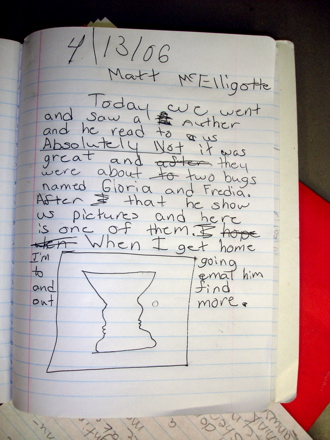 4/13/06
Matt McElligotte
Today we went
and saw a Auther
and he read to us
Absolutely Not it was
great and after they
were about to two bugs
named Gloria and Fredia.
After that he show
us pictures and here
is one of them. I hope
When I get home
I'm going
to emal him
and find
out more.